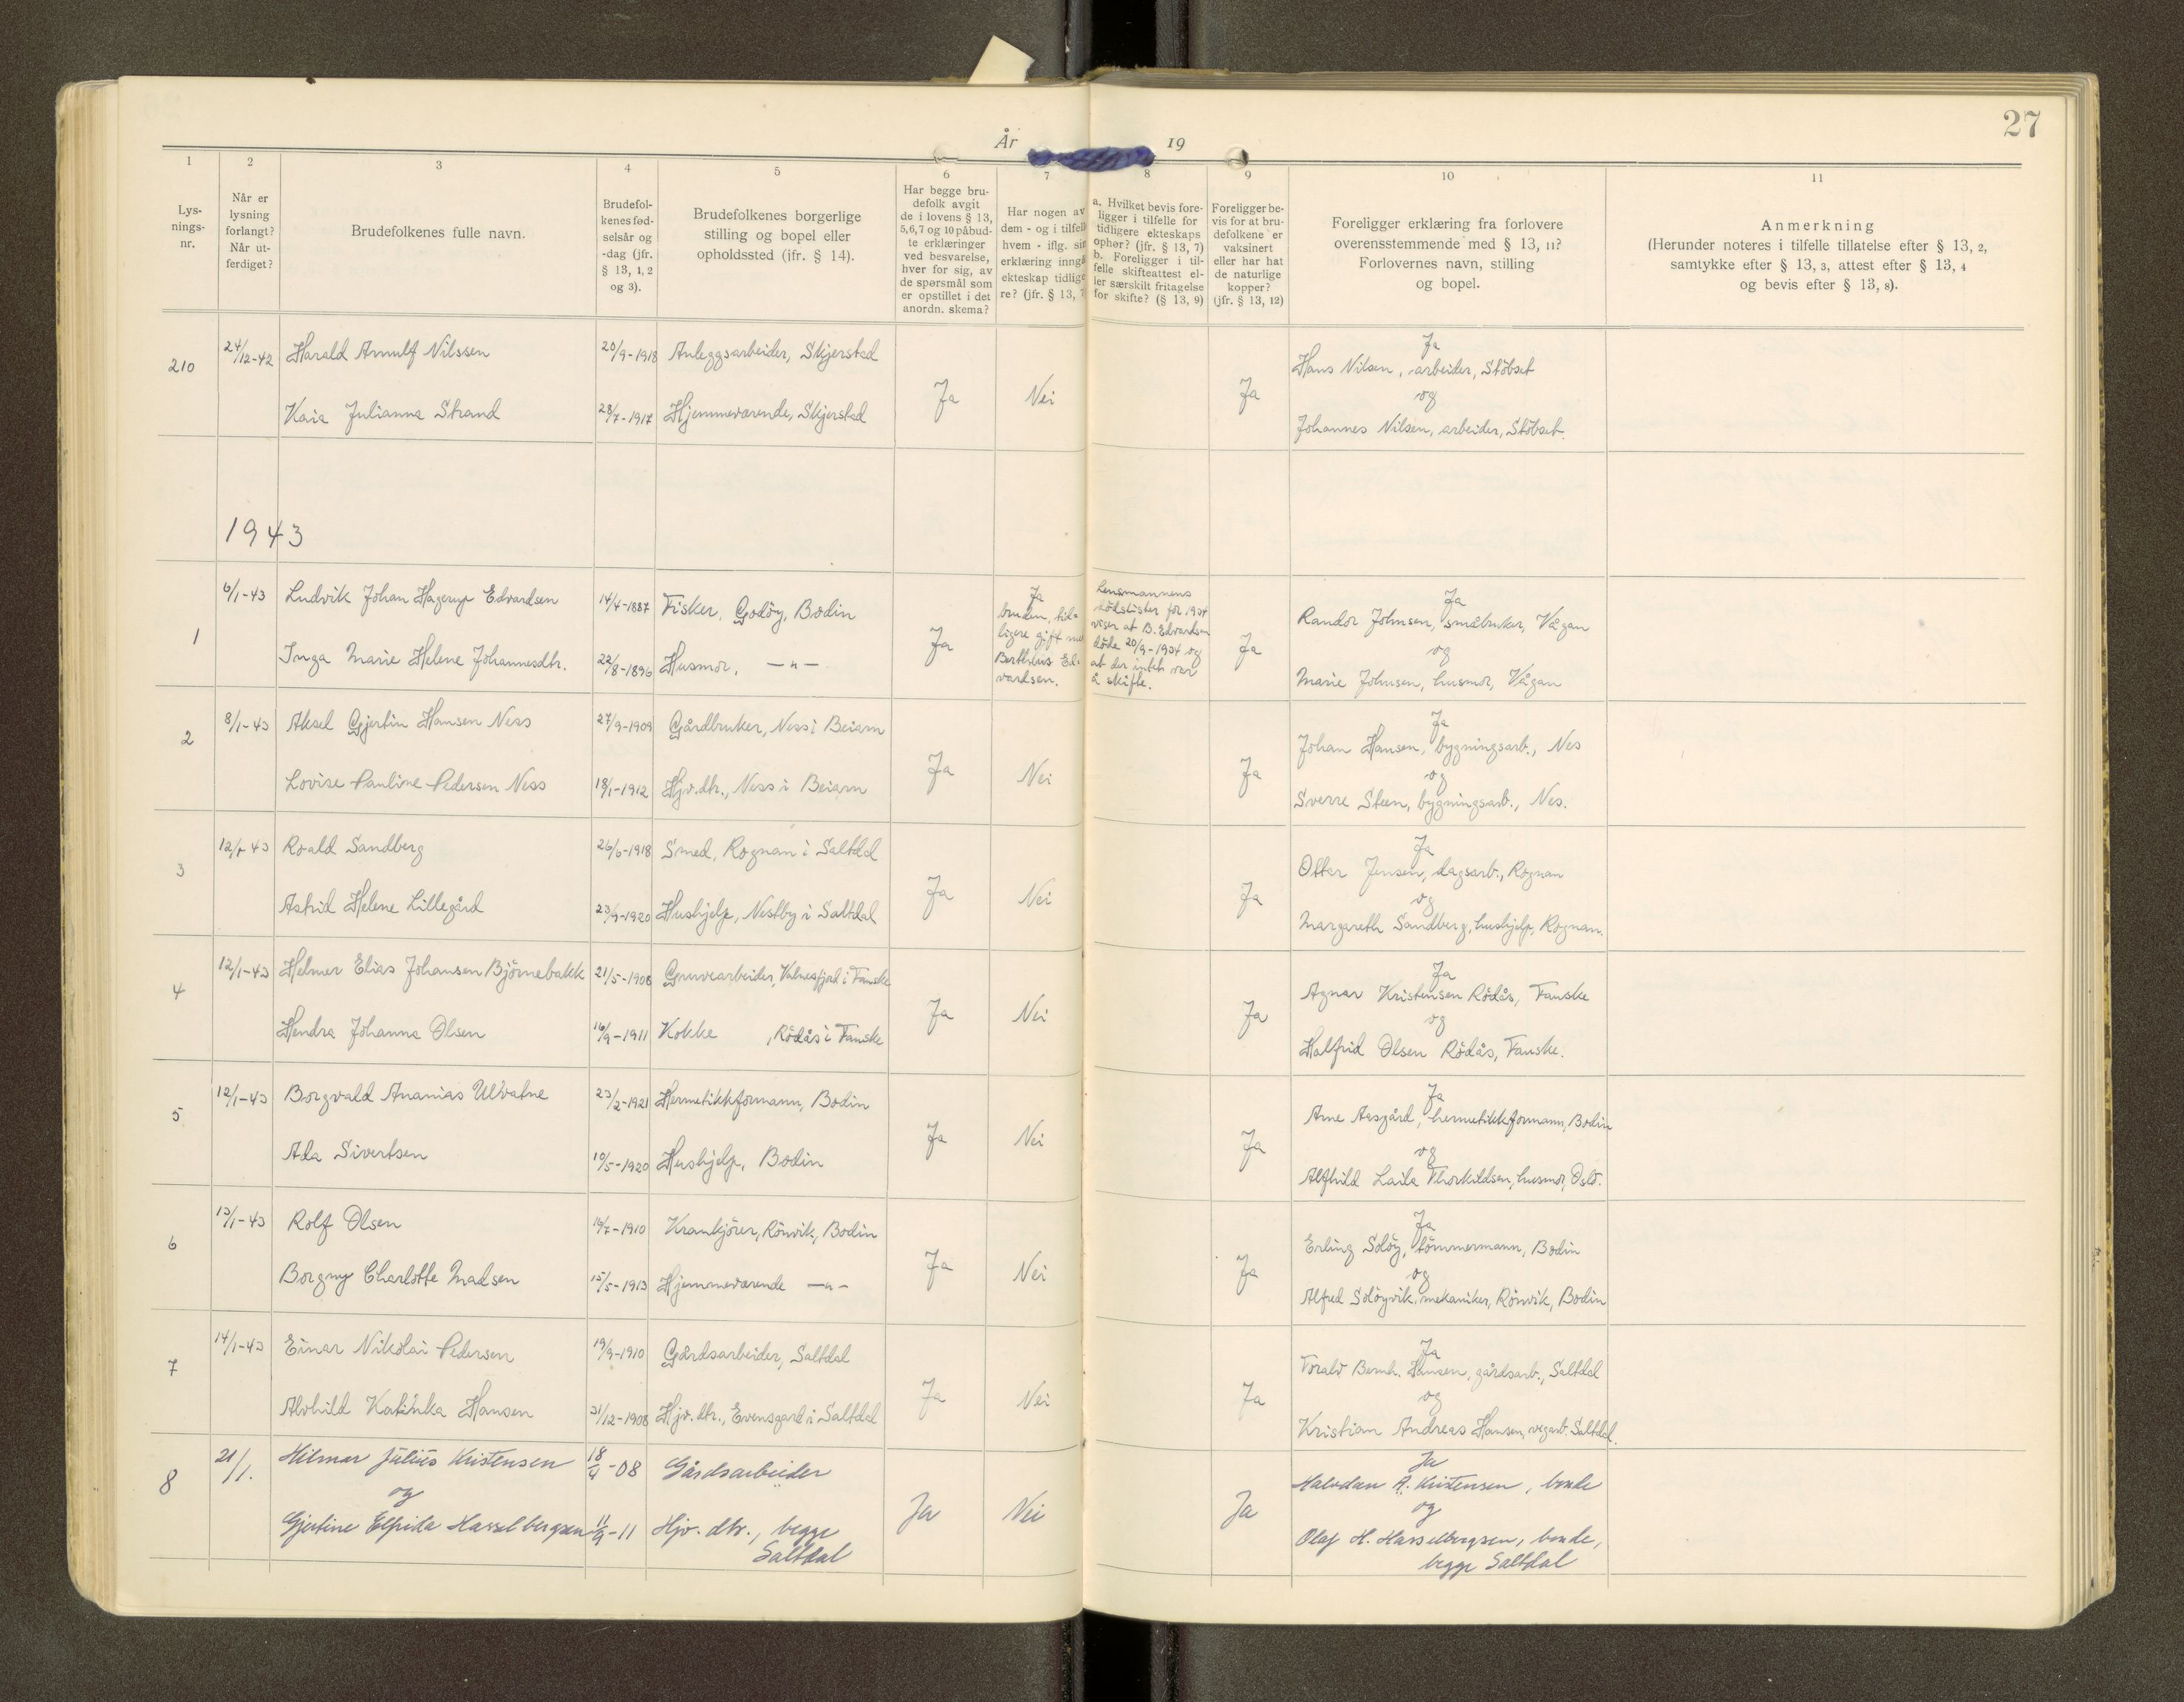 27
År 19
1 2 3 4 5 6 7 8 9 10 11
Lys-
nings-
nr.
Når er
lysning
forlangt?
Når ut-
ferdiget?
Brudefolkenes fulle navn.
Brudefol-
kenes fød-
selsår og
-dag (jfr.
§ 13, 1, 2
og 3).
Brudefolkenes borgerlige
stilling og bopel eller
opholdssted (jfr. § 14).
Har begge bru-
defolk avgit
de i lovens § 13,
5,6,7 og 10 påbud-
te erklæringer
ved besvarelse,
hver for sig, av
de spørsmål som
er opstillet i det
anordn. skema?
Har nogen av
dem - og i tilfelle
hvem - iflg. sin
erklæring inngå
ekteskap tidlige
re? (jfr. § 13, 7
a. Hvilket bevis fore-
ligger i tilfelle for
tidligere ekteskaps
ophør? (jfr. § 13, 7)
b. Foreligger i til-
felle skifteattest el-
ler særskilt fritagelse
for skifte? (§ 13, 9)
Foreligger be-
vis for at bru-
defolkene er
vaksinert
eller har hat
de naturlige
kopper?
(jfr. § 13, 12)
Foreligger erklæring fra forlovere
overensstemmende med § 13, 11?
Forlovernes navn, stilling
og bopel.
Anmerkning
(Herunder noteres i tilfelle tillatelse efter § 13, 2,
samtykke efter § 13, 3, attest efter § 13, 4
og bevis efter § 13, 8).
210
24/12-42
Harald Arnulf Nilssen
20/9-1918
Anleggsarbeider, Skjerstad
Kaia Julianna Strand
28/7-1917
Hjemmeværende, Skjerstad
Ja
Nei
Ja
Ja
Hans Nilsen, arbeider, Stöbset
og
Johannes Nilsen, arbeider, Stöbset.
1943
1
6/1-43
Ludvik Johan Hagerup Edvardsen
14/4-1887
Fisker, Godöy, Bodin
Inga Marie Helene Johannesdtr.
22/8-1896
Husmor, —"—
Ja
Ja
bruden, tid-
ligere gift me
Berthleus Ed-
vardsen.
Lensmannens
dödslister for 1934
viser at B. Edvardsen
döde 20/9-1934 og
at der intet var
å skifte.
Ja
Ja
Randor Johnsen, småbruker, Vågan
og
Marie Johnsen, husmor, Vågan
2
8/1-43
Aksel Gjertin Hansen Ness
27/9-1909
Gårdbruker, Ness i Beiarn
Lovise Pauline Pedersen Ness
18/1-1912
Hjv.dtr., Ness i Beiarn
Ja
Nei
Ja
Ja
Johan Hansen, bygningsarb., Nes
og
Sverre Steen, bygningsarb., Nes.
3
12/1-43
Roald Sandberg
26/6-1918
Smed, Rognan i Saltdal
Astrid Helene Lillegård
23/9-1920
Hushjelp, Nestby i Saltdal
Ja
Nei
Ja
Ja
Ottar Jensen, dagsarb., Rognan
og
Margareth Sandberg, hushjelp, Rognan.
4
12/1-43
Helmer Elias Johansen Björnebakk
21/5-1906
Gruvearbeider, Valnesfjord i Fauske
Hendra Johanna Olsen
16/9-1911
Kokke , Rödås i Fauske
Ja
Nei
Ja
Ja
Agnar Kristensen Rödås, Fauske
og
Halfrid Olsen Rödås, Fauske.
5
12/1-43
Borgvald Ananias Ulvatne
23/2-1921
Hermetikkformann, Bodin
Ada Sivertsen
10/5-1920
Hushjelp, Bodin
Ja
Nei
Ja
Ja
Arne Aasgård, hermetikkformann, Bodin
og
Alfhild Laila Thorkildsen, husmor, Oslo.
6
13/1-43
Rolf Olsen
16/7-1910
Krankjörer, Rönvik, Bodin
Borgny Charlotte Madsen
15/5-1913
Hjemmeværende —"—
Ja
Nei
Ja
Ja
Erling Solöy, tömmermann, Bodin
og
Alfred Solöyvik, mekaniker, Rönvik, Bodin
7
14/1-43
Einar Nikolai Pedersen
19/9-1910
Gårdsarbeider, Saltdal
Alvhild Katinka Hansen
31/12-1908
Hjv.dtr., Evensgard i Saltdal
Ja
Nei
Ja
Ja
Toralv Bernh. Hansen, gårdsarb., Saltdal
og
Kristian Andreas Hansen, vegarb. Saltdal.
8
21/1.
Hilmar Julius Kristensen
18/4-08
Gårdsarbeider
og
Gjertine Elfrida Hasselbergsen
11/9-11
Hjv. dtr., begge
Saltdal
Ja
Nei
Ja
Ja
Halvdan A. Kristensen, bonde
og
Olaf H. Hasselbergsen, bonde,
begge Saltdal